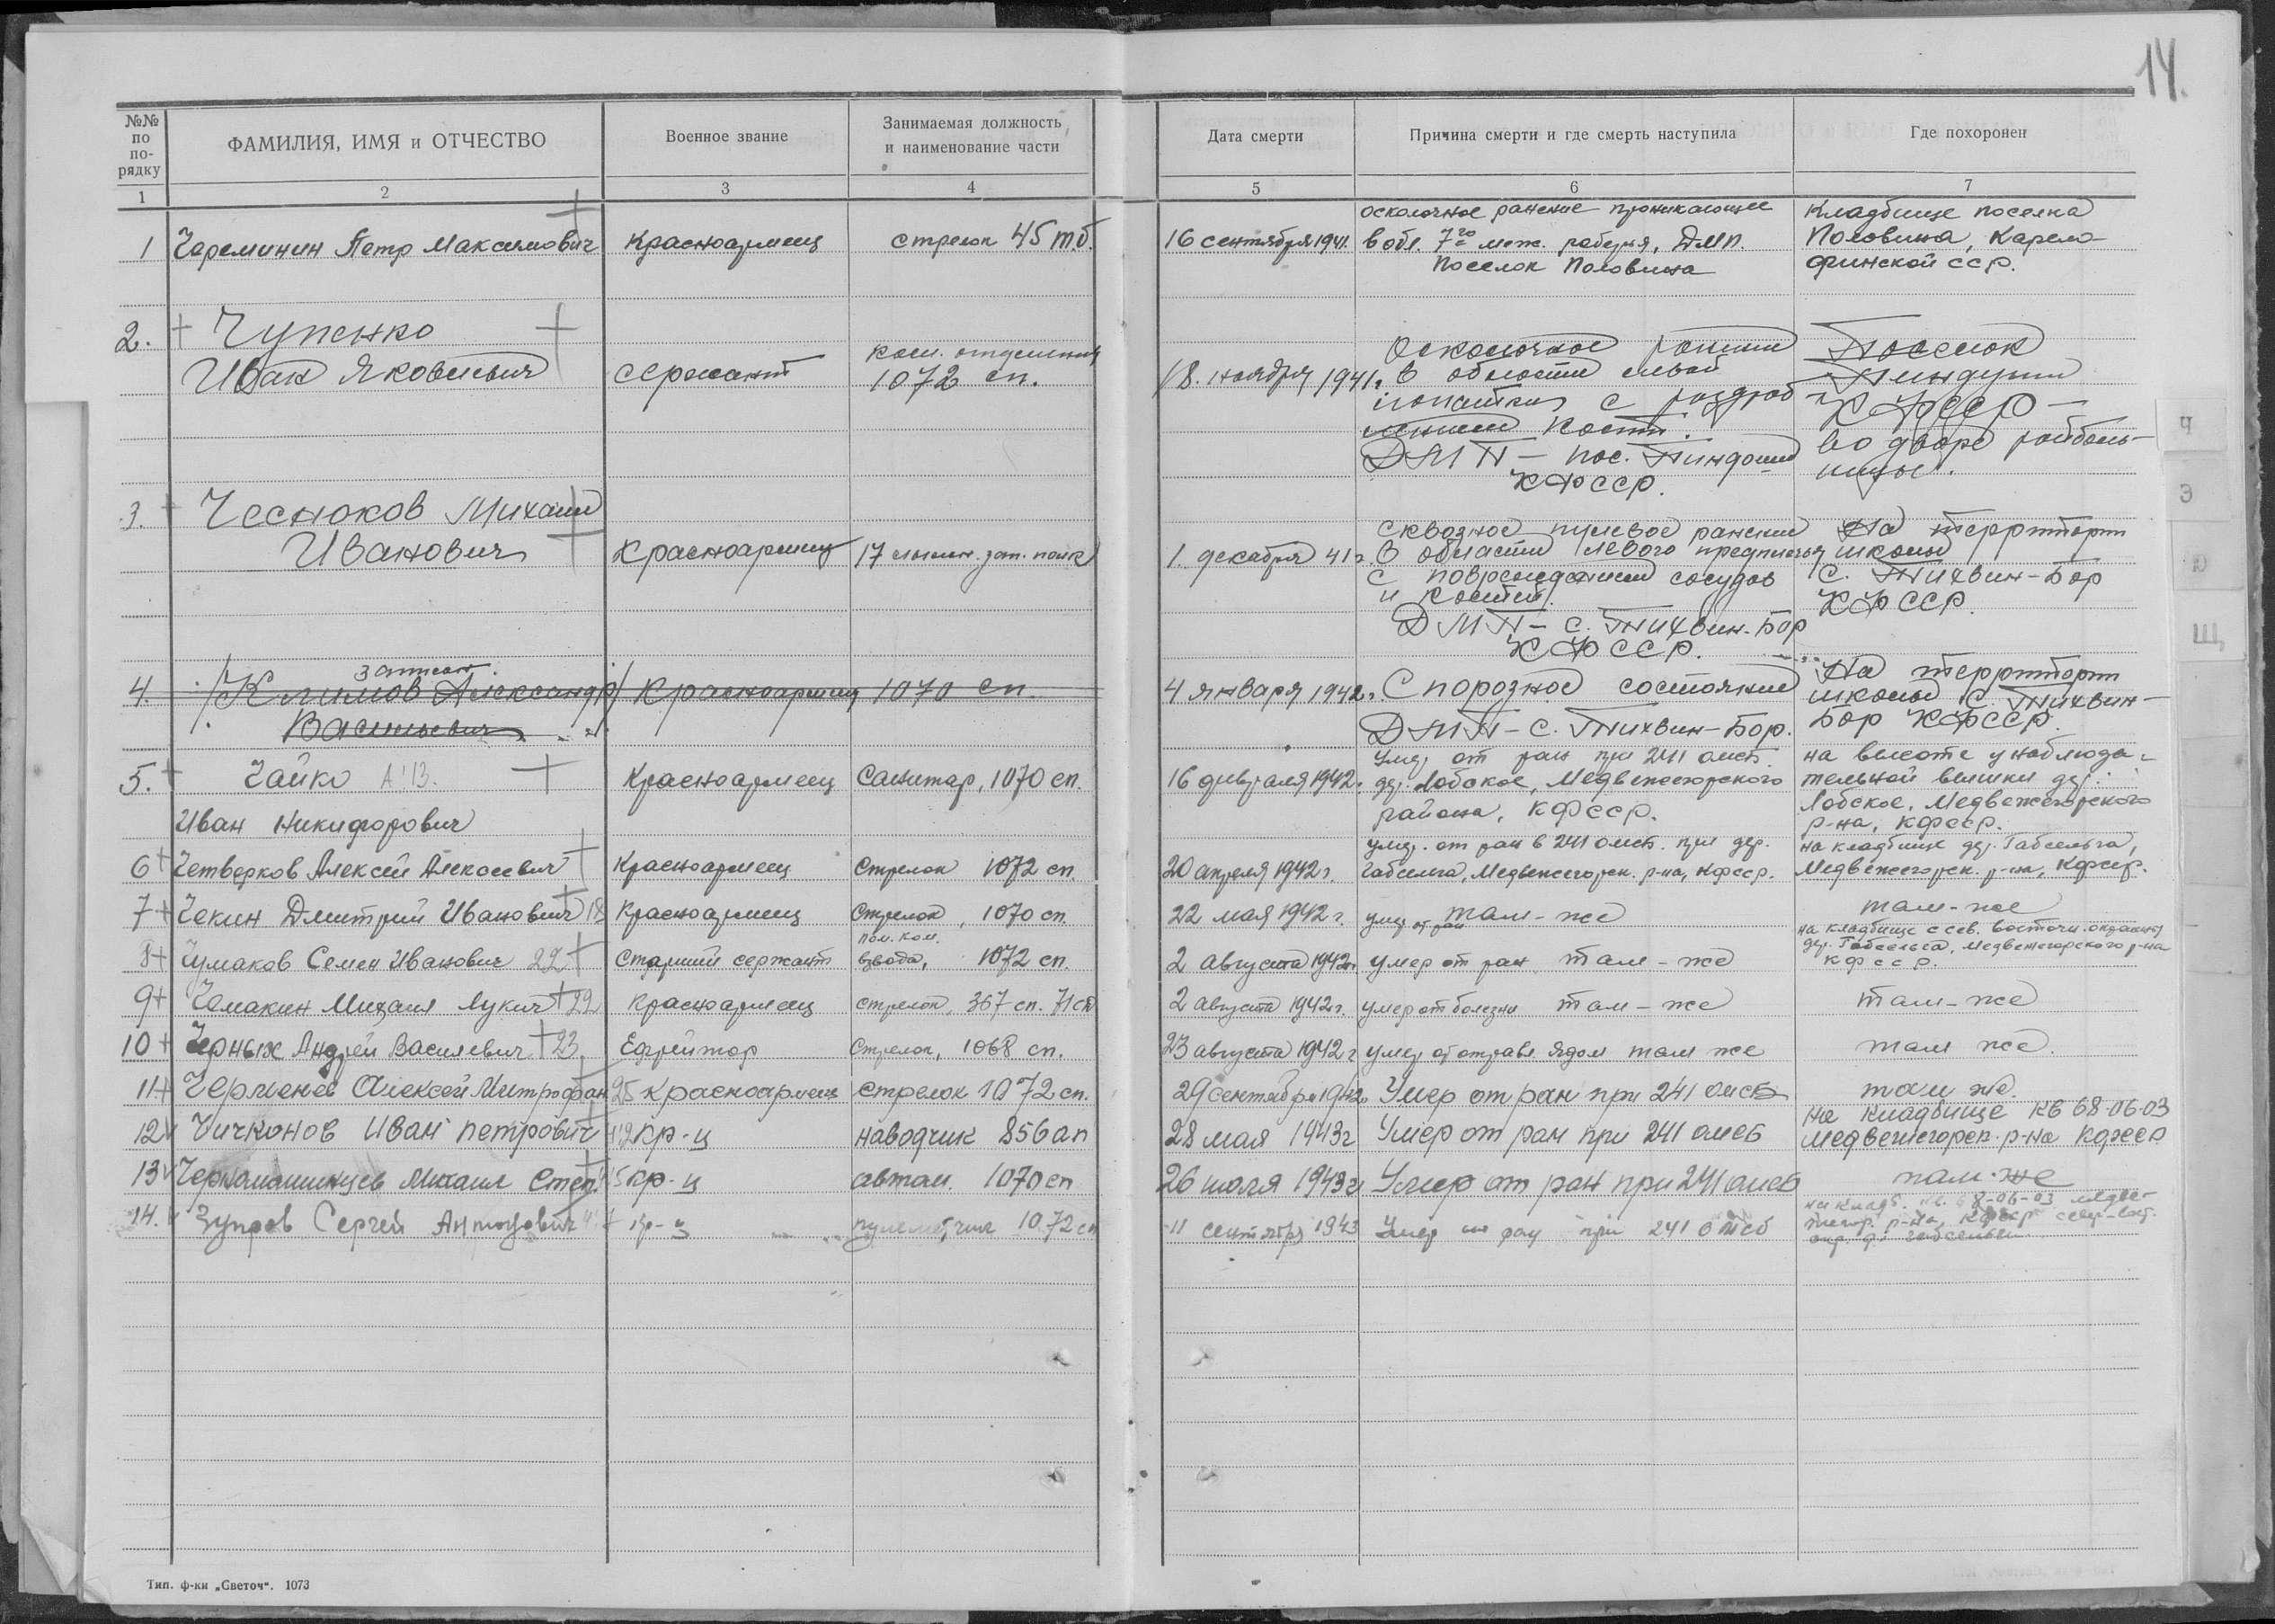 14.
№№ по по-рядку
ФАМИЛИЯ, ИМЯ и ОТЧЕСТВО
Военное звание
Занимаемая должность и наименование части
Дата смерти
Причина смерти и где смерть наступила
Где похоронен
1 2 3 4 5 6 7
1 Черемицин Петр Максимович Красноармеец стрелок 45 т.б.
16 сентября 1941. осколочное ранение проникающее
в обл. 7го меж. реберья, ДМП.
Поселок Половина
Кладбище поселка
Половина, Карело-
финской сср.
2. Чупенко
Иван Яковлевич сержант ком. отделения
1072 сп.
18. ноября 1941г. Осколочное ранение
в области левой
лопатки с раздроб-
лением кости.
ДМП - пос. Пиндоши
КФССР.
Поселок
Пиндуши
КФССР -
во дворе райболь-
ницы.
3. Чесноков Михаил
Иванович Красноармеец 17 лыжн. зап. полк
1. декабря 41г. сквозное пулевое ранение
в области левого предплечья
с повреждением сосудов
и костей.
ДМП - с. Тихвин-Бор
КФССР.
На территори
школы
с. Тихвин-Бор
КФССР.
записан.
4. Климов Александр
Васильевич Красноармеец 1070 сп.
4 января 1942г. С порозное состояние
ДМП - с. Тихвин-Бор.
На территори
школы с. Тихвин-
Бор КФССР.
5. Чайко А!13.
Иван Никифорович Красноармеец Санитар, 1070 сп.
16 февраля 1942. Умер от ран при 241 омсб.
дер. Лобское, Медвежегорского
района, КФССР.
на высоте у наблюда-
тельной вышки дер.
Лобское, Медвежегорского
р-на, КФССР.
6 Четверков Алексей Алексеевич Красноармеец Стрелок 1072 сп.
20 апреля 1942 г. умер. от ран в 241 омсб. при дер.
Габсельга, Медвежегорск. р-на, КФССР.
на кладбище дер. Габсельга,
Медвежегорск. р-на, КФССР.
7 Чекин Дмитрий Иванович 18 Красноармеец Стрелок, 1070 сп.
22 мая 1942 г. умер от ран там-же
там-же
8 Чумаков Семен Иванович 22 Старший сержант пом. ком.
взвода, 1072 сп.
2 августа 1942г. умер от ран там-же
на кладбище с сев. восточн. окраины
дер. Габсельга, Медвежегорского р-на
КФССР.
9 Чемакин Михаил Лукич 22 Красноармеец стрелок, 367 сп. 71 сд
2 августа 1942г. умер от болезни там-же
там-же
10 Черных Андрей Василевич 23 Ефрейтор Стрелок, 1068 сп.
23 августа 1942 г умер от отравл. ядом там же
там же.
11 Черменев Алексей Митрофан 25 красноармеец стрелок 1072 сп.
29 сентября 1942 Умер от ран при 241 омсб
там же.
12 Чичконов Иван Петрович кр-ц наводчик 856 ап
28 мая 1943г Умер от ран при 241 омсб
на кладбище кв 68-06-03
медвежегорск. р-на КФССР
13 Михаил Степ. кр-ц автом. 1070 сп
26 июля 1943г Умер от ран при 241 омсб
там-же
14. Сергей Антонович кр-ц пулеметчик 1072 сп
11 сентября 1943 Умер от ран при 241 омсб
на кладб. кв. 68-06-03 медве-
жегор. р-на, КФССР
Ч
Э
Ю
Щ
Тип. ф-ки „Светоч“. 1073